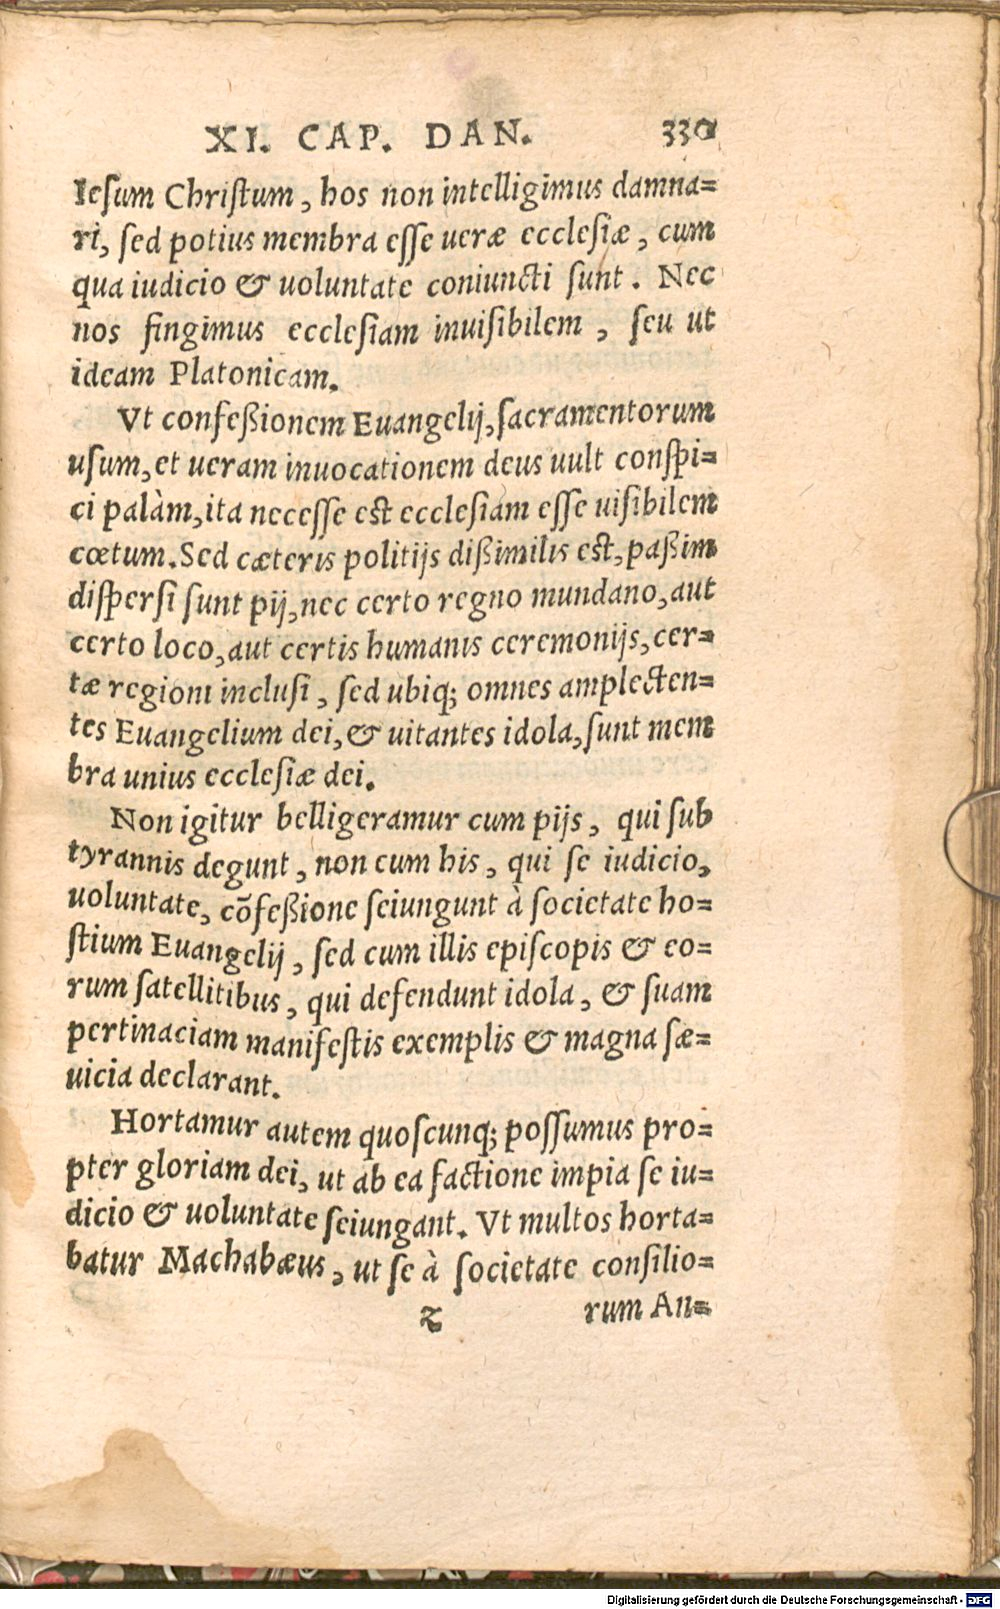 XI. CAP. DAN. 330
Iesum Christum, hos non intelligimus damna=
ri, sed potius membra esse ueræ ecclesiæ, cum
qua iudicio & uoluntate coniuncti sunt. Nec
nos fingimus ecclesiam inuisibilem, seu ut
ideam Platonicam.
Vt confeßionem Euangelij, sacramentorum
usum, et ueram inuocationem deus uult conspi=
ci palàm, ita necesse est ecclesiam esse uisibilem
cœtum. Sed cæteris politijs dißimilis est, paßim
dispersi sunt pij, nec certo regno mundano, aut
certo loco, aut certis humanis ceremonijs, cer=
tæ regioni inclusi, sed ubiq; omnes amplecten=
tes Euangelium dei, & uitantes idola, sunt mem
bra unius ecclesiæ dei.
Non igitur belligeramur cum pijs, qui sub
tyrannis degunt, non cum his, qui se iudicio,
uoluntate, cõfeßione seiungunt à societate ho=
stium Euangelij, sed cum illis episcopis & eo=
rum satellitibus, qui defendunt idola, & suam
pertinaciam manifestis exemplis & magna sæ=
uicia declarant.
Hortamur autem quoscunq; possumus pro=
pter gloriam dei, ut ab ea factione impia se iu=
dicio & uoluntate seiungant. Vt multos horta=
batur Machabæus, ut se à societate consilio=
z rum An=
Digitalisierung gefördert durch die Deutsche Forschungsgemeinschaft - DFG